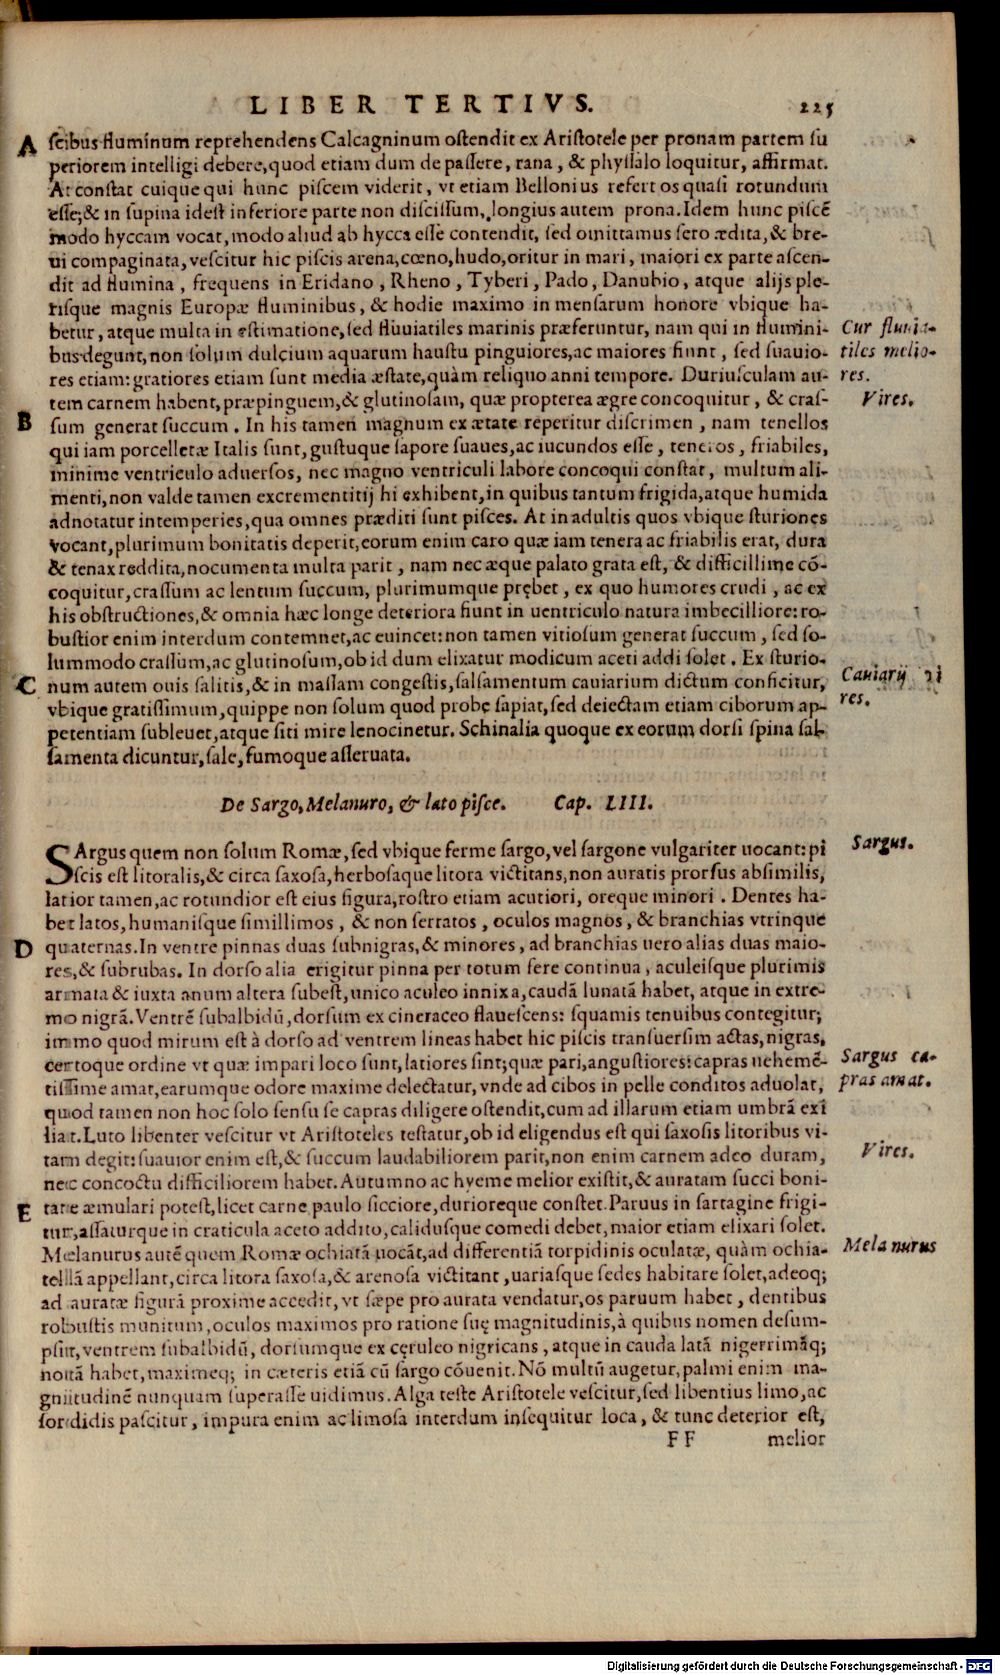 LIBER TERTIVS. 225
A scibus fluminum reprehendens Calcagninum ostendit ex Aristotele per pronam partem su
periorem intelligi debere, quod etiam dum de passere, rana, & physsalo loquitur, affirmat.
At constat cuique qui hunc piscem viderit, vt etiam Bellonius refert os quasi rotundum
esse; & in supina idest inferiore parte non discissum, longius autem prona. Idem hunc piscē
modo hyccam vocat, modo aliud ab hycca esse contendit, sed omittamus sero ædita, & bre-
ui compaginata, vescitur hic piscis arena, cœno, hudo, oritur in mari, maiori ex parte ascen-
dit ad flumina, frequens in Eridano, Rheno, Tyberi, Pado, Danubio, atque alijs ple-
risque magnis Europæ fluminibus, & hodie maximo in mensarum honore vbique ha-
betur, atque multa in estimatione, sed fluuiatiles marinis præferuntur, nam qui in flumini-
Cur fluuia-
bus degunt, non solum dulcium aquarum haustu pinguiores, ac maiores fiunt, sed suauio-
tiles melio-
res etiam: gratiores etiam sunt media æstate, quàm reliquo anni tempore. Duriusculam au-
res.
tem carnem habent, præpinguem, & glutinosam, quæ propterea ægre concoquitur, & cras-
Vires.
B sum generat succum. In his tamen magnum ex ætate reperitur discrimen, nam tenellos
qui iam porcelletæ Italis sunt, gustuque sapore suaues, ac iucundos esse, teneros, friabiles,
minime ventriculo aduersos, nec magno ventriculi labore concoqui constat, multum ali-
menti, non valde tamen excrementitij hi exhibent, in quibus tantum frigida, atque humida
adnotatur intemperies, qua omnes præditi sunt pisces. At in adultis quos vbique sturiones
vocant, plurimum bonitatis deperit, eorum enim caro quæ iam tenera ac friabilis erat, dura
& tenax reddita, nocumenta multa parit, nam nec æque palato grata est, & difficillime cō-
coquitur, crassum ac lentum succum, plurimumque prębet, ex quo humores crudi, ac ex
his obstructiones, & omnia hæc longe deteriora fiunt in uentriculo natura imbecilliore: ro-
bustior enim interdum contemnet, ac euincet: non tamen vitiosum generat succum, sed so-
lummodo crassum, ac glutinosum, ob id dum elixatur modicum aceti addi solet. Ex sturio-
C num autem ouis salitis, & in massam congestis, salsamentum cauiarium dictum conficitur,
Cauiarij vi
vbique gratissimum, quippe non solum quod probę sapiat, sed deiectam etiam ciborum ap-
res.
petentiam subleuet, atque siti mire lenocinetur. Schinalia quoque ex eorum dorsi spina sal-
samenta dicuntur, sale, fumoque asseruata.
De Sargo, Melanuro, & lato pisce. Cap. LIII.
SArgus quem non solum Romæ, sed vbique ferme sargo, vel sargone vulgariter uocant: pi
Sargus.
scis est litoralis, & circa saxosa, herbosaque litora victitans, non auratis prorsus absimilis,
latior tamen, ac rotundior est eius figura, rostro etiam acutiori, oreque minori. Dentes ha-
bet latos, humanisque simillimos, & non serratos, oculos magnos, & branchias vtrinque
D quaternas. In ventre pinnas duas subnigras, & minores, ad branchias uero alias duas maio-
res, & subrubas. In dorso alia erigitur pinna per totum fere continua, aculeisque plurimis
armata & iuxta anum altera subest, unico aculeo innixa, caudā lunatā habet, atque in extre-
mo nigrā. Ventrē subalbidū, dorsum ex cineraceo flauescens: squamis tenuibus contegitur;
immo quod mirum est à dorso ad ventrem lineas habet hic piscis transuersim actas, nigras,
certoque ordine vt quæ impari loco sunt, latiores sint; quæ pari, angustiores: capras uehemē-
Sargus ca-
tissime amat, earumque odore maxime delectatur, vnde ad cibos in pelle conditos aduolat,
pras amat.
quod tamen non hoc solo sensu se capras diligere ostendit, cum ad illarum etiam umbrā exi
liat. Luto libenter vescitur vt Aristoteles testatur, ob id eligendus est qui saxosis litoribus vi-
tam degit: suauior enim est, & succum laudabiliorem parit, non enim carnem adeo duram,
Vires.
nec concoctu difficiliorem habet. Autumno ac hyeme melior existit, & auratam succi boni-
E tate æmulari potest, licet carne paulo sicciore, durioreque constet. Paruus in sartagine frigi-
tur, assaturque in craticula aceto addito, calidusque comedi debet, maior etiam elixari solet.
Melanurus autē quem Romæ ochiatā uocāt, ad differentiā torpidinis oculatæ, quàm ochia-
Melanurus
tellā appellant, circa litora saxosa, & arenosa victitant, uariasque sedes habitare solet, adeoq;
ad auratæ figurā proxime accedit, vt sæpe pro aurata vendatur, os paruum habet, dentibus
robustis munitum, oculos maximos pro ratione suę magnitudinis, à quibus nomen desum-
psit, ventrem subalbidū, dorsumque ex cęruleo nigricans, atque in cauda latā nigerrimāq;
notā habet, maximeq; in cæteris etiā cū sargo cōuenit. Nō multū augetur, palmi enim ma-
gnitudinē nunquam superasse uidimus. Alga teste Aristotele vescitur, sed libentius limo, ac
sordidis pascitur, impura enim ac limosa interdum insequitur loca, & tunc deterior est,
FF melior
Digitalisierung gefördert durch die Deutsche Forschungsgemeinschaft - DFG